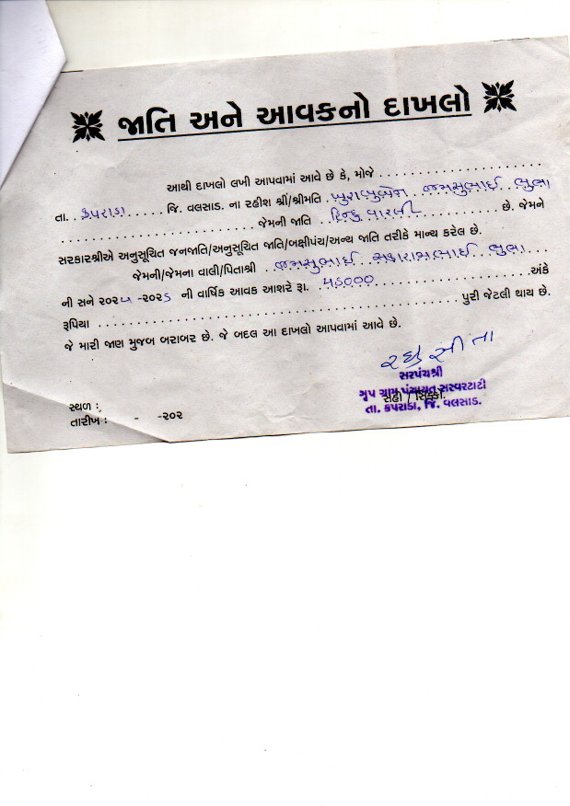 જાતિ અને આવકનો દાખલો
આથી દાખલો લખી આપવામાં આવે છે કે, મોજે
તા. કપરાડા જિ. વલસાડ. ના રહીશ શ્રી/શ્રીમતિ ખુરાબુબેન જમસુભાઈ ભુલા
જેમની જાતિ હિન્દુ વારલી છે. જેમને
સરકારશ્રીએ અનુસૂચિત જનજાતિ/અનુસૂચિત જાતિ/બક્ષીપંચ/અન્ય જાતિ તરીકે માન્ય કરેલ છે.
જેમની/જેમના વાલી/પિતાશ્રી જમસુભાઈ ભુલા
ની સને ૨૦૨૫ -૨૦૨૬ ની વાર્ષિક આવક આશરે રૂા. ૫૬૦૦૦ અંકે
રૂપિયા પુરી જેટલી થાય છે.
જે મારી જાણ મુજબ બરાબર છે. જે બદલ આ દાખલો આપવામાં આવે છે.
સરપંચશ્રી
ગૃપ ગ્રામ પંચાયત સરવરટાટી
સહી / સિક્કો.
તા. કપરાડા, જિ. વલસાડ.
સ્થળ :
તારીખ : - -૨૦૨